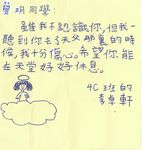 寶明同學：
雖我不認識你，但我一
聽到你去了天父那裏的時
候，我十分傷心。希望你能
在天堂好好休息。
4C班的
李卓軒